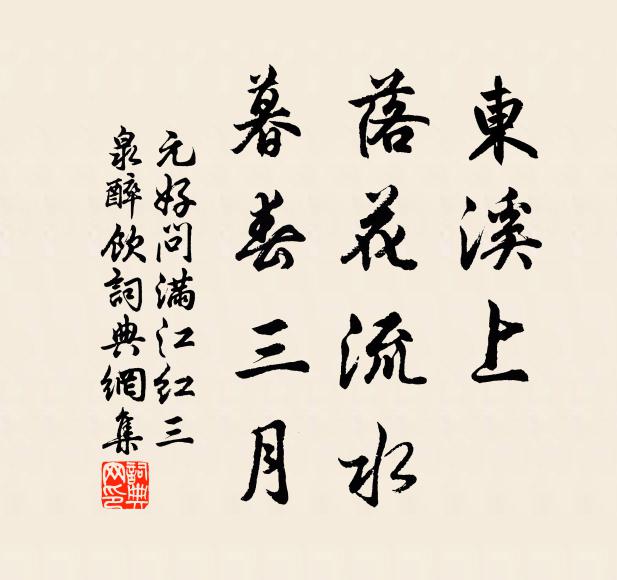 東溪上
落花流水
暮春三月
元好問滿江紅三
泉醉飲詞典網集
詞典
网印